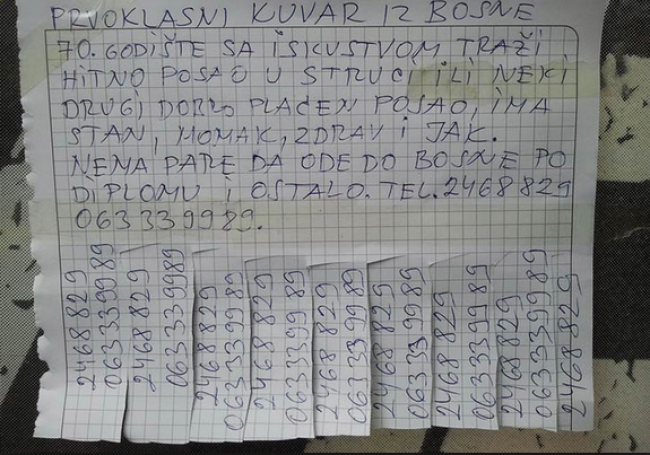 PRVOKLASNI KUVAR IZ BOSNE
70. GODIŠTE SA ISKUSTVOM TRAŽI
HITNO POSAO U STRUCI ILI NEKI
DRUGI DOBRO PLAĆEN POSAO, IMA
STAN, MOMAK, ZDRAV I JAK.
NEMA PARE DA ODE DO BOSNE PO
DIPLOMU I OSTALO. TEL. 2468829
0633399 89.
2468 829
063339989
2468 829
063339989
2468829
063339989
2468 829
063339989
2468 829
063339989
2468 829
063339989
2468 829
063339989
2468 829
063339989
2468 829